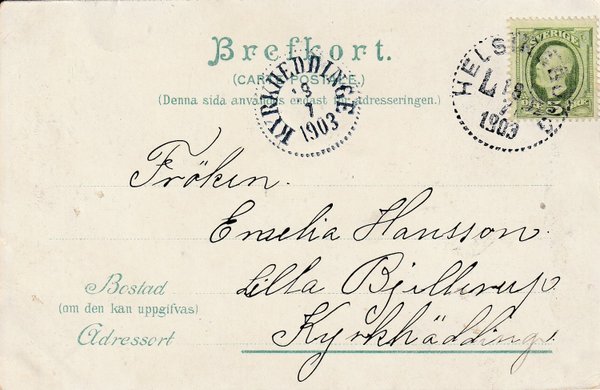 Brefkort.
(CARTE POSTALE.)
(Denna sida användes endast för adresseringen.)
KYRKHEDDINGE
18
7
1903
HELSINGBORG
L
18
7
1903
SVERIGE
5
Fröken.
Emelia Hansson.
Lilla Bjellerup
Kyrkhäddinge
Bostad
(om den kan uppgifvas)
Adressort